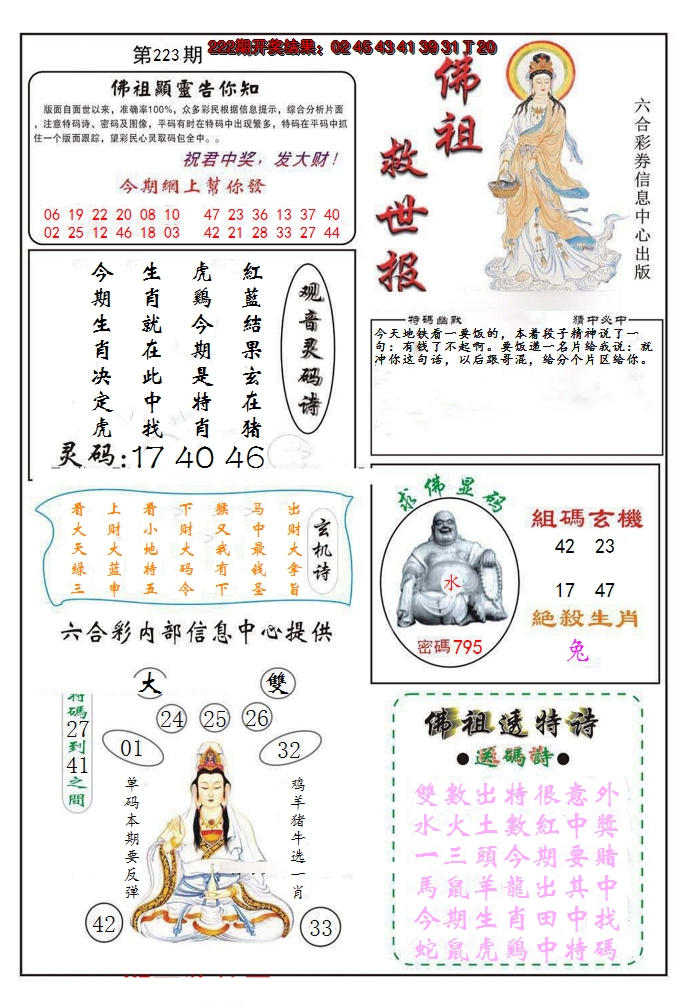 第223期
222期开奖结果：02 45 43 41 39 31 T 20
佛祖顯靈告你知
版面自面世以来，准确率100%，众多彩民根据信息提示，综合分析片面
，注意特码诗、密码及图像，平码有时在特码中出现繁多，特码在平码中抓
住一个版面跟踪，望彩民心灵取码包全中。。
祝君中奖，发大财！
今期網上幫你發
06 19 22 20 08 10 47 23 36 13 37 40
02 25 12 46 18 03 42 21 28 33 27 44
佛祖
救世报
六合彩券信息中心出版
观音灵码诗
紅藍結果玄在猪
虎鷄今期是特肖
生肖就在此中找
今期生肖决定虎
灵码:17 40 46
特碼幽默
猜中必中
今天地铁看一要饭的，本着段子精神说了一
句：有钱了不起啊。要饭递一名片给我说：就
冲你这句话，以后跟哥混，给分个片区给你。
玄机诗
出财大拿旨
马中最钱圣
猴又我有下
下财大码今
看小地特五
上财大蓝申
看大天绿三
六合彩内部信息中心提供
求佛显码
水
密碼795
組碼玄機
42 23
17 47
絕殺生肖
兔
大
雙
特碼27到41之間
24 25 26
01
32
单码本期要反弹
鸡羊猪牛选一肖
42
33
佛祖透特诗
●送碼詩●
雙數出特很意外
水火土數紅中獎
一三頭今期要賭
馬鼠羊龍出其中
今期生肖田中找
蛇鼠虎鷄中特碼